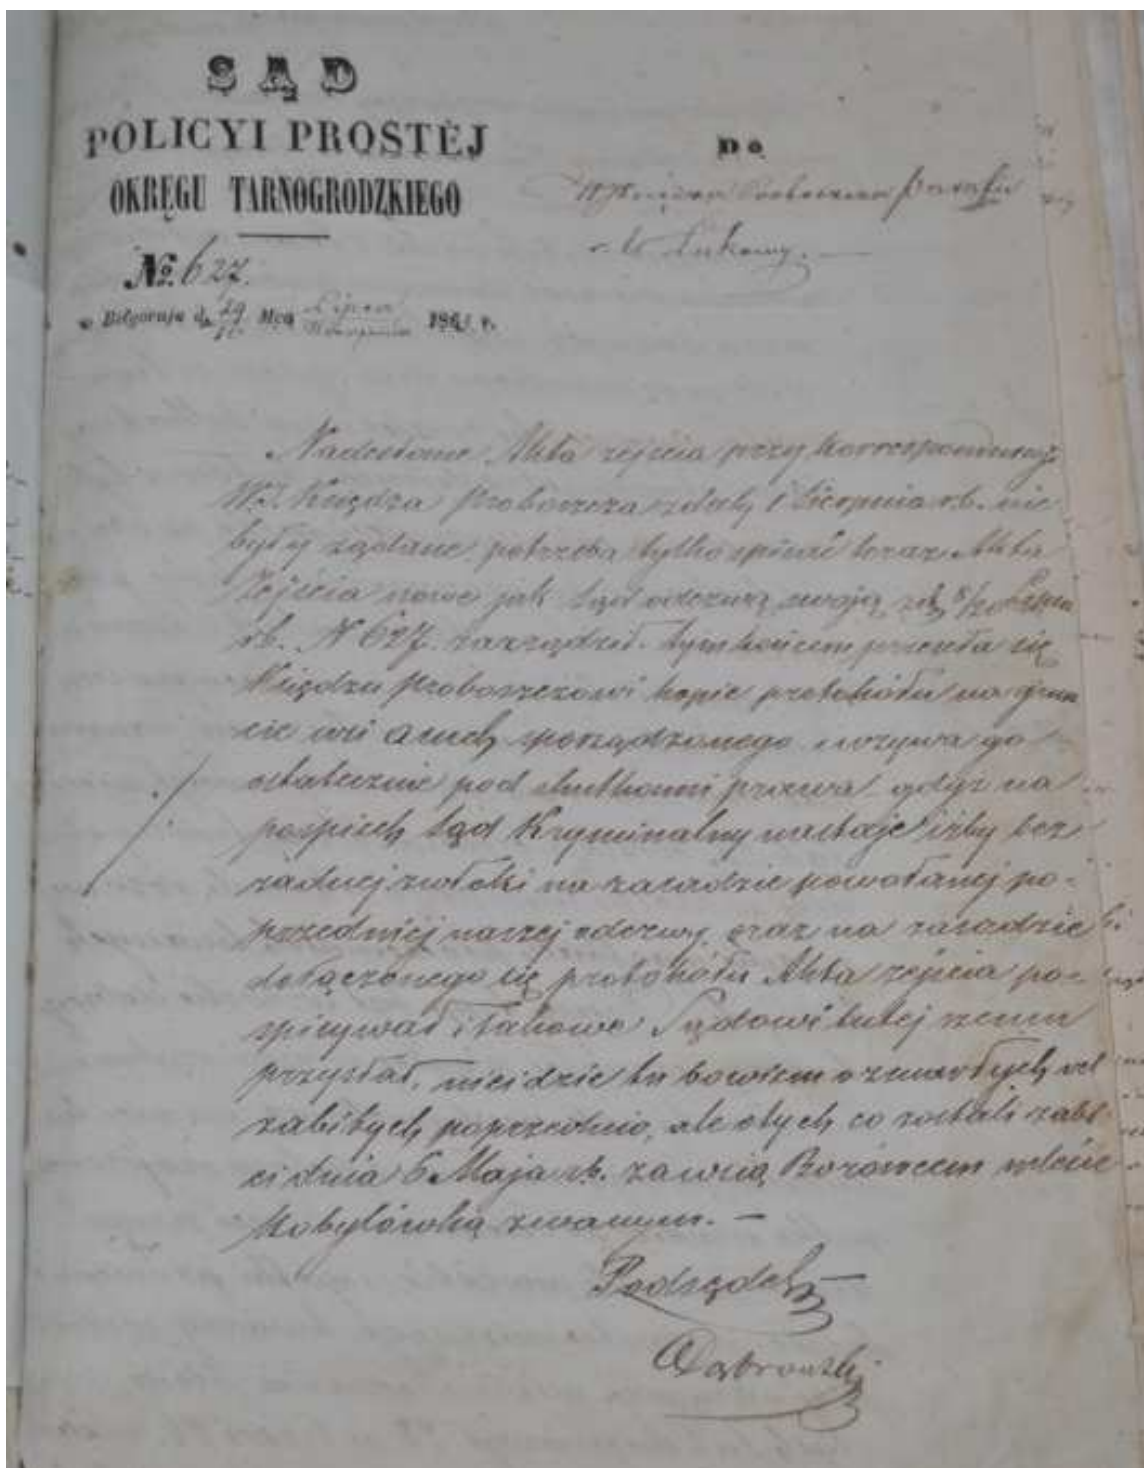 SĄD
POLICYI PROSTÉJ
OKRĘGU TARNOGRODZKIEGO
№ 627.
w Biłgoraju d. 29 Mca Lipca 1863 r.
Do
Proboszcza Parafii
w Łukowy. —
Nadesłane Akta zejścia przy korrespondencyi
WJ. Księdza Proboszcza z daty 1 Sierpnia r.b. nie
były żądane, potrzeba tylko spisać teraz Akta
Zejścia nowe jak Sąd odezwą swoją z d. 8/20 Lipca
r.b. N 627. zarządził. tym końcem przesyła się
Księdzu Proboszczowi kopie protokółu na grun
cie wsi Osuch sporządzonego i wzywa go
ostatecznie pod skutkami prawa gdyż na
pośpiech Sąd Kryminalny nastaje iżby bez
żadnej zwłoki na zasadzie powołanej po-
przedniéj naszej odezwy, oraz na zasadzie
dołączonego się protokółu Akta zejścia po-
spisywał i takowe Sądowi tutejszemu
przysłał, nieidzie tu bowiem o zmarłych vel
zabitych poprzednio, ale o tych co zostali zabi-
ci dnia 6 Maja r.b. za wsią Borówcem w lesie
Kobylówką zwanym. —
Podsędek
Dąbrowski